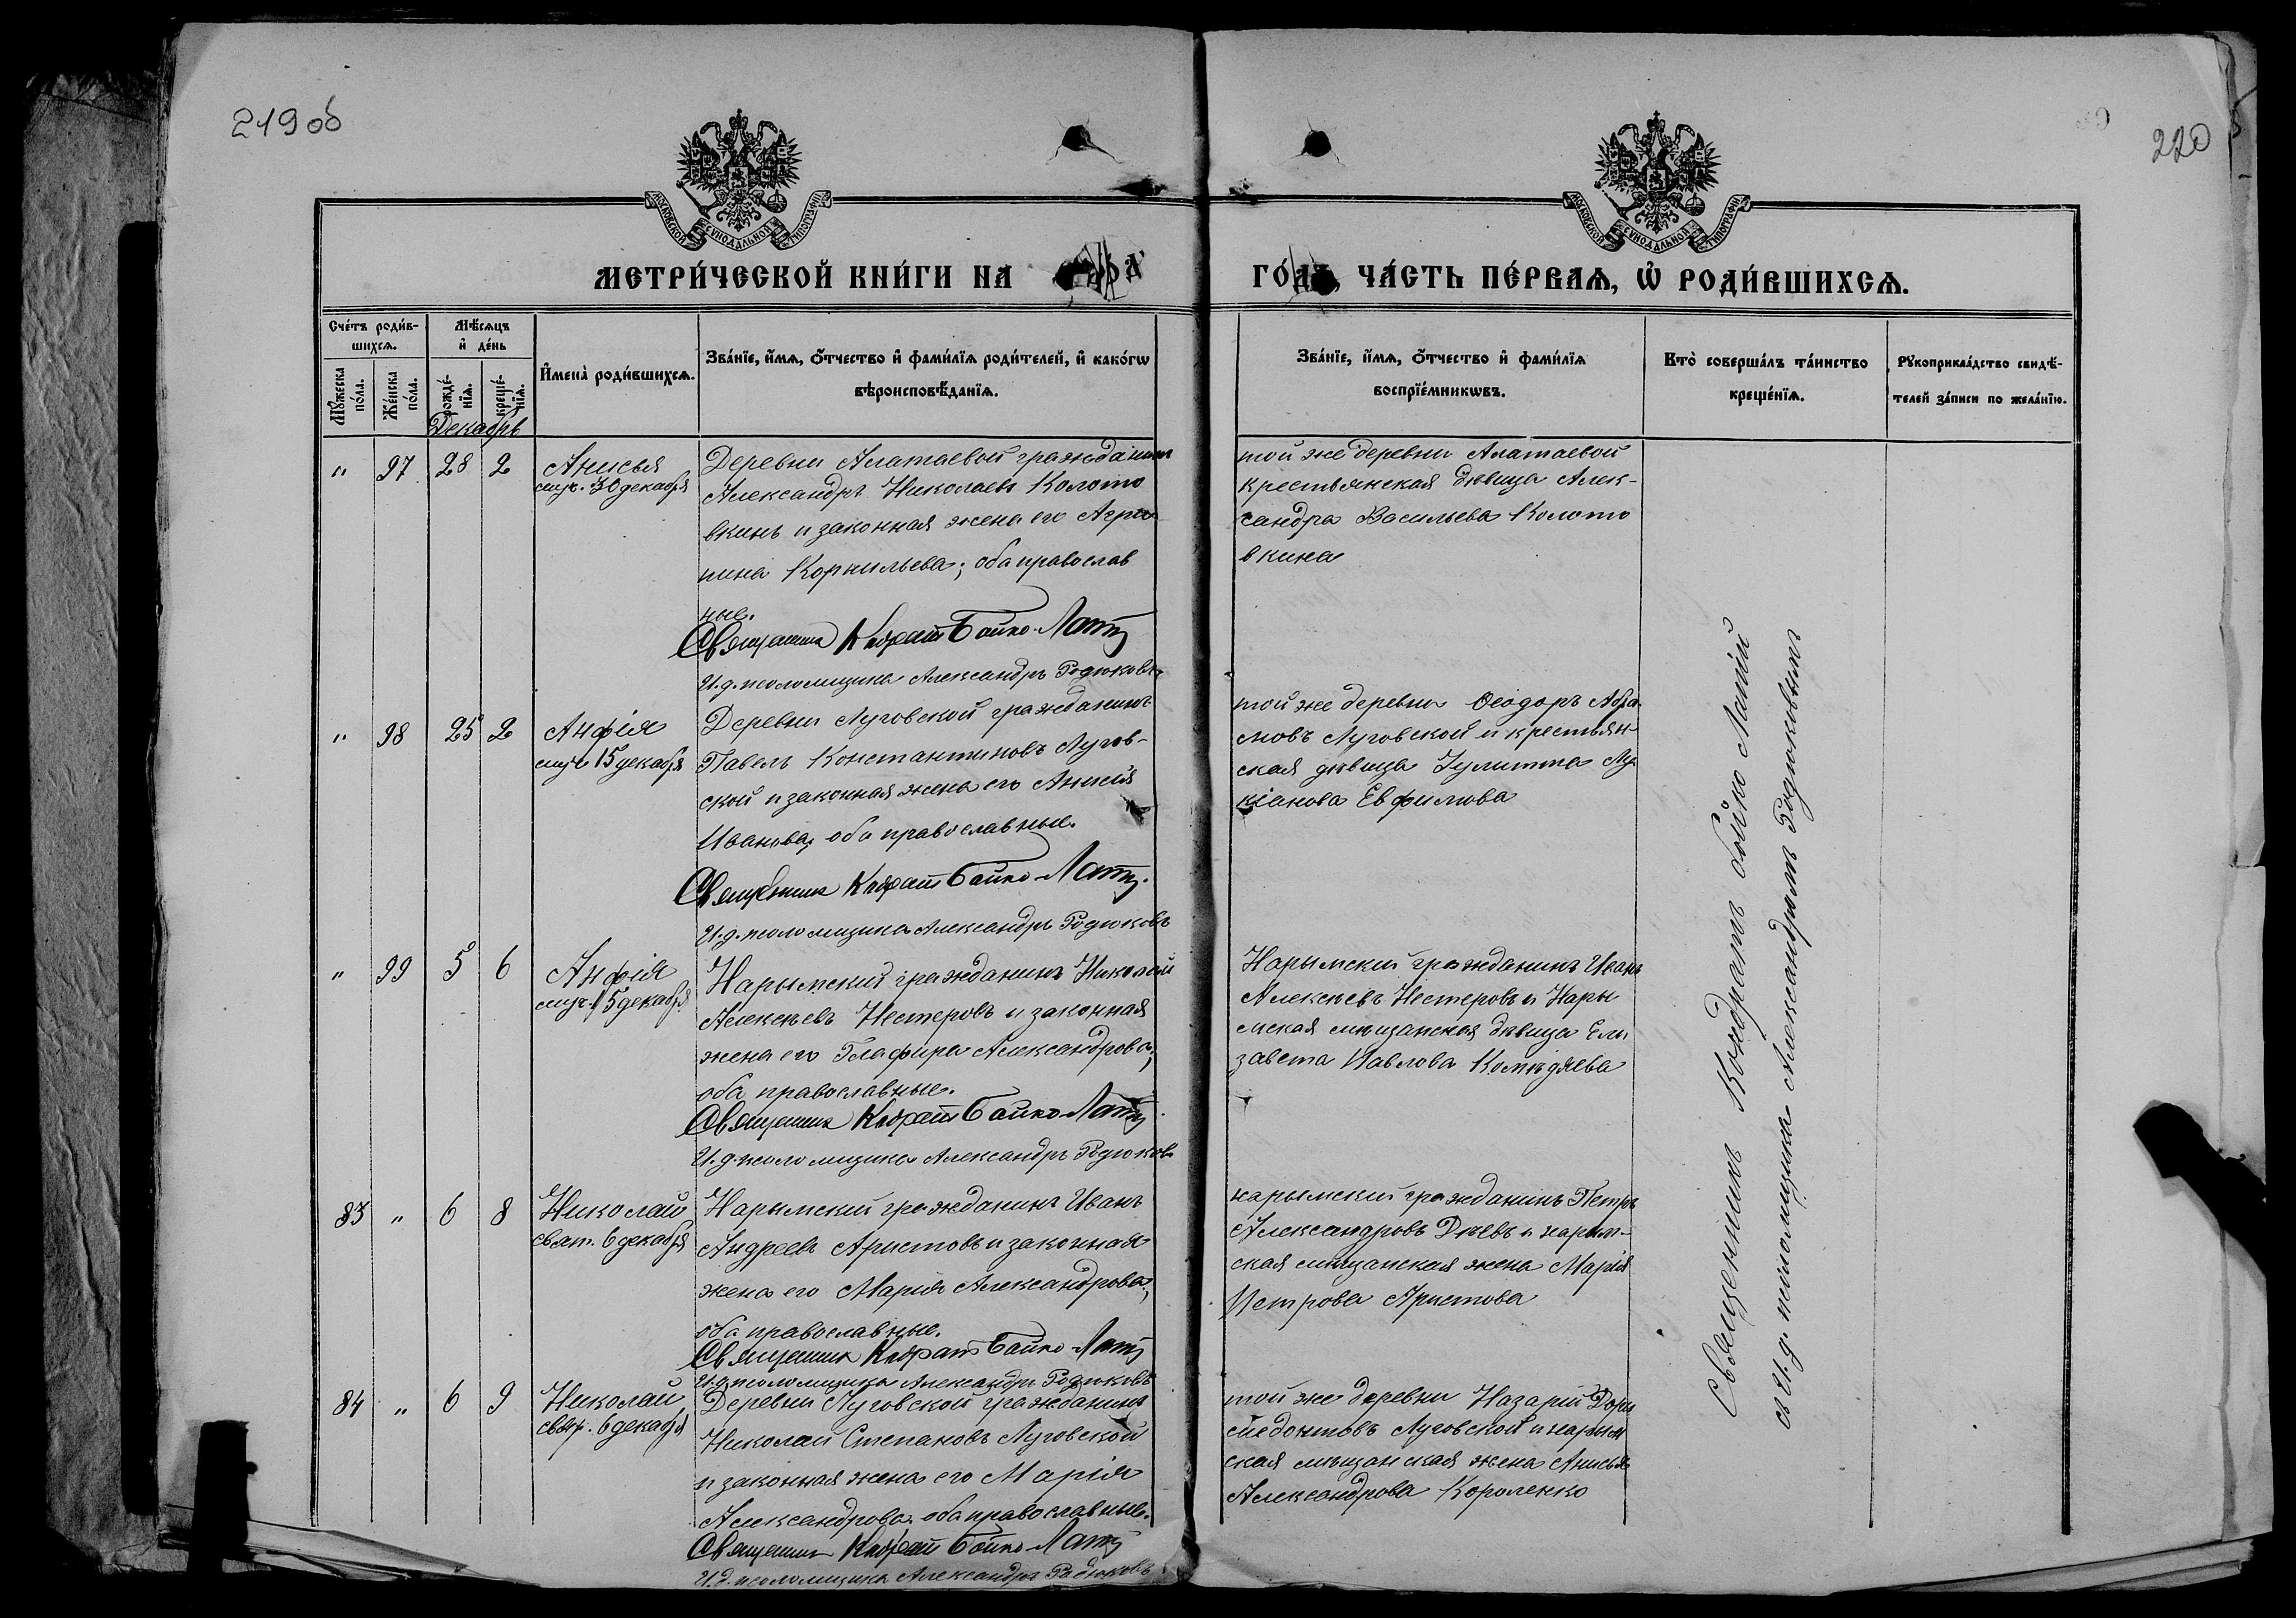 219 об
220
МОСКОВСКОЙ СУНОДАЛЬНОЙ ТИПОГРАФІИ
МОСКОВСКОЙ СУНОДАЛЬНОЙ ТИПОГРАФІИ
МЕТРИ́ЧЕСКОЙ КНИ́ГИ НА
ГО́ДЪ, ЧА́СТЬ ПЕ́РВАѦ, Ѡ҆ РОДИ́ВШИХСѦ.
Сче́тъ роди́в-
шихсѧ.
Мѣ́сѧцъ
и҆ де́нь
Мꙋ́жеска по́ла.
Же́нска по́ла.
рожде́-
нїѧ.
креще́-
нїѧ.
И҆мена̀ роди́вшихсѧ.
Зва́нїе, и҆́мѧ, ѻ҆́тчество и҆ фами́лїѧ роди́телей, и҆ како́гѡ
вѣроисповѣ́данїѧ.
Зва́нїе, и҆́мѧ, ѻ҆́тчество и҆ фами́лїѧ
воспрїе́мникѡвъ.
Кто̀ соверша́лъ та́инство
креще́нїѧ.
Рꙋкоприкла́дство свидѣ́-
телей за́писи по жела́нїю.
Декабрь
" 97 28 2
Анисья
муч. 30 декабря
Деревни Алатаевой гражданин
Александръ Николаевъ Колото
вкинъ и законная жена его Агри
пина Корнильева; оба православ
ные.
Священник Кодрат Бойко-Латій
И.д. псаломщика Александръ Родюковъ
той же деревни Алатаевой
крестьянская дѣвица Алек-
сандра Васильева Колото
вкина
" 98 25 2
Анфія
муч 15 декабря
Деревни Луговской гражданинъ
Павелъ Константиновъ Лугов-
ской и законная жена его Анисія
Иванова, оба православные.
Священник Кодрат Бойко-Латій.
И.д. псаломщика Александръ Родюковъ
той же деревни Ѳеодоръ Абра
мовъ Луговской и крестьян
ская дѣвица Іулитта Лу
кіанова Евфимова
" 99 5 6
Анфія
муч. 15 декабря
Нарымскій гражданинъ Николай
Алексѣевъ Нестеровъ и законная
жена его Глафира Александрова;
оба православные.
Священник Кодрат Бойко-Латій
И.д. псаломщика Александръ Родюковъ
Нарымскій гражданинъ Иванъ
Алексѣевъ Нестеровъ и Нары
мская мѣщанская дѣвица Ели
завета Павлова Комѣдяева
83 " 6 8
Николай
свят. 6 декабря
Нарымскій гражданинъ Иванъ
Андреевъ Аристовъ и законная
жена его Марія Александрова,
оба православные.
Священник Кодрат Бойко-Латій
И.д. псаломщика Александръ Родюковъ
нарымскій гражданинъ Петръ
Александровъ Дѣевъ и нарым-
ская мѣщанская жена Марія
Петрова Аристова
84 " 6 9
Николай
свят. 6 декабря
Деревни Луговской гражданинъ
Николай Степановъ Луговской
и законная жена его Марія
Александрова. оба православные.
Священник Кодрат Бойко-Латій
И.д. псаломщика Александръ Родюковъ
той же деревни Назарій Дори
медонтовъ Луговской и нарым
ская мѣщанская жена Анисья
Александрова Короленко
Священникъ Кондратъ Бойко Латій
съ И.д. псаломщика Александромъ Родюковымъ